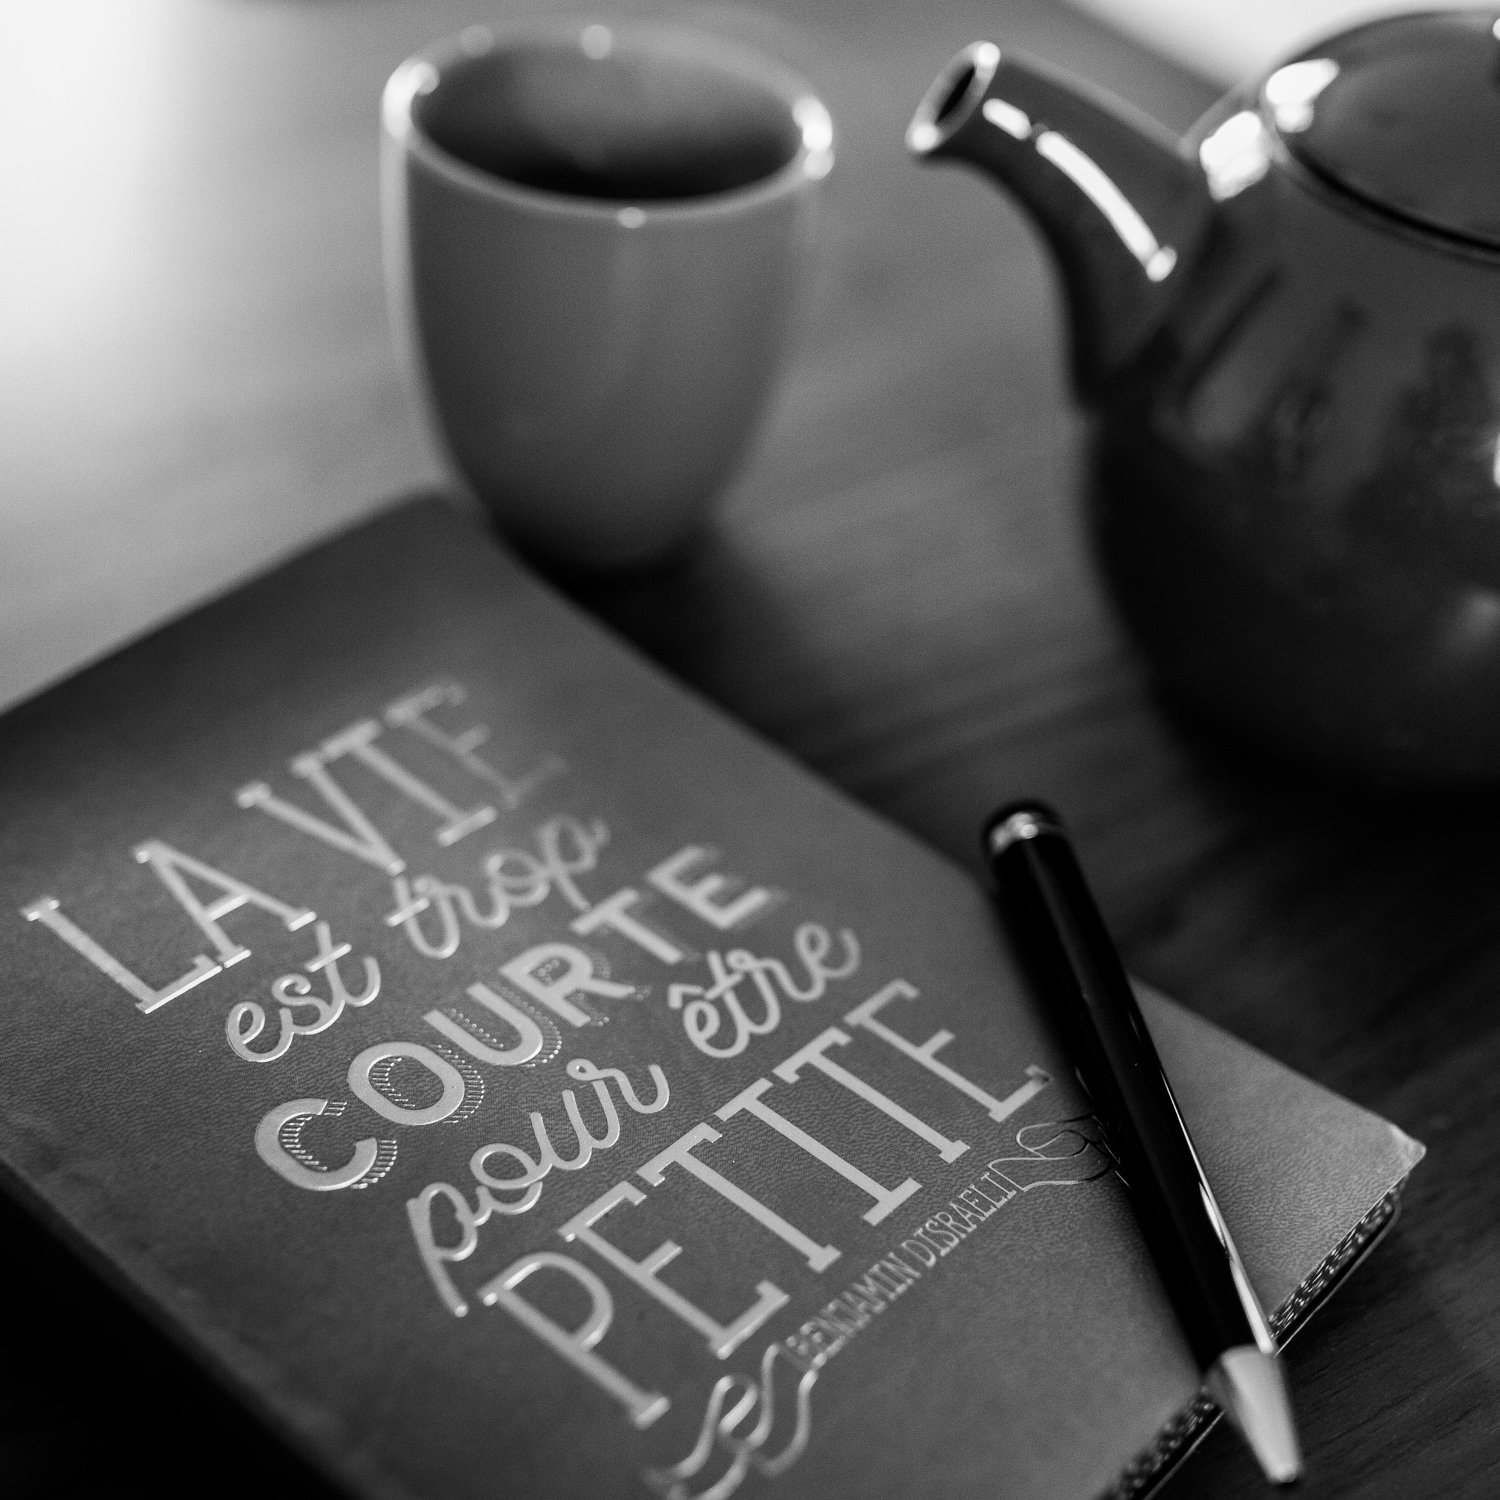 LA VIE
est trop
COURTE
pour être
PETITE
BENJAMIN DISRAELI